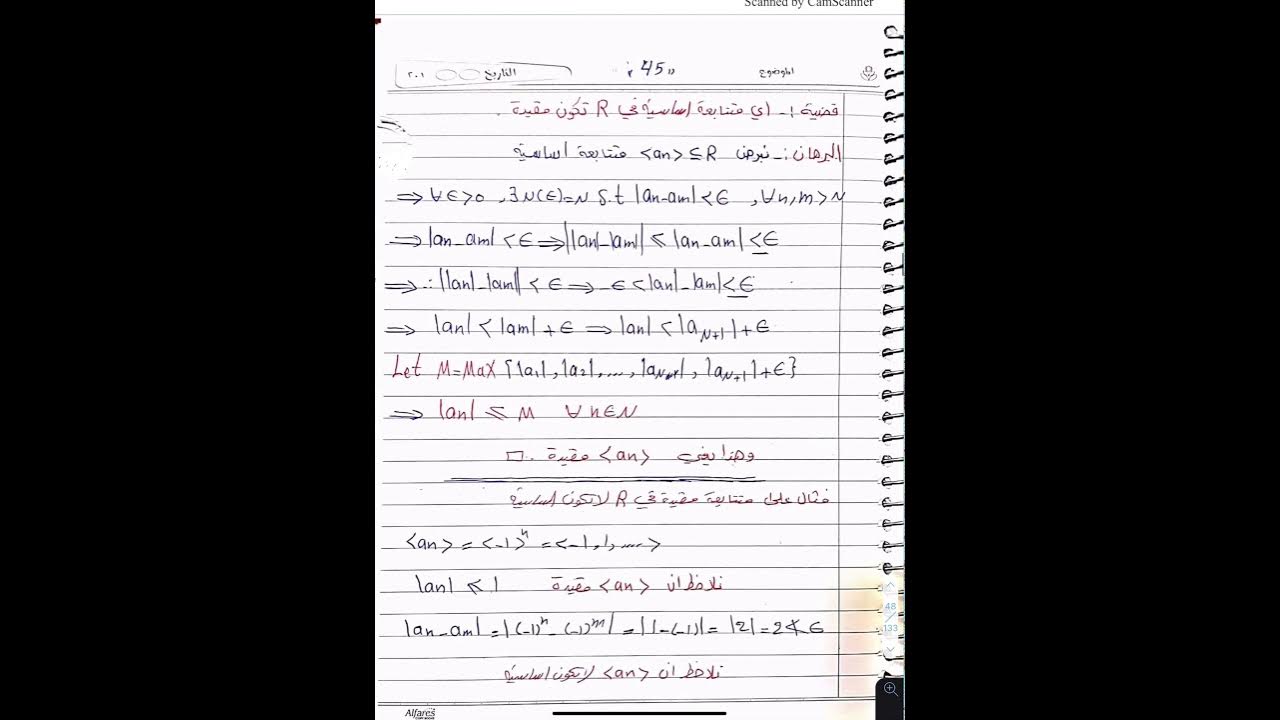 Scanned by CamScanner
الموضوع "45" التاريخ ٢٠١
قضية :- أي متتابعة أساسية في R تكون مقيدة .
البرهان :- نفرض <an> ⊆ R متتابعة أساسية
⇒ ∀ε>0 , ∃N(ε)=N s.t |an-am|<ε , ∀n,m>N
⇒ |an-am|<ε ⇒ ||an|-|am|| ≤ |an-am| <ε
⇒ ∴ ||an|-|am|| <ε ⇒ -ε<|an|-|am|<ε
⇒ |an|<|am|+ε ⇒ |an|<|a_{N+1}|+ε
Let M=Max {|a1|,|a2|,...., , |a_{N+1}|+ε}
⇒ |an| ≤ M ∀n∈N
وهذا يعني <an> مقيدة . □
مثال على متتابعة مقيدة في R لا تكون أساسية
<an> = <-1>^n = <-1,1,.....>
نلاحظ ان <an> مقيدة |an| ≤ 1
|an-am| = |(-1)^n - (-1)^m| = |1-(-1)| = |2| = 2 ≮ ε
نلاحظ ان <an> لا تكون أساسية
48
133
Alfares